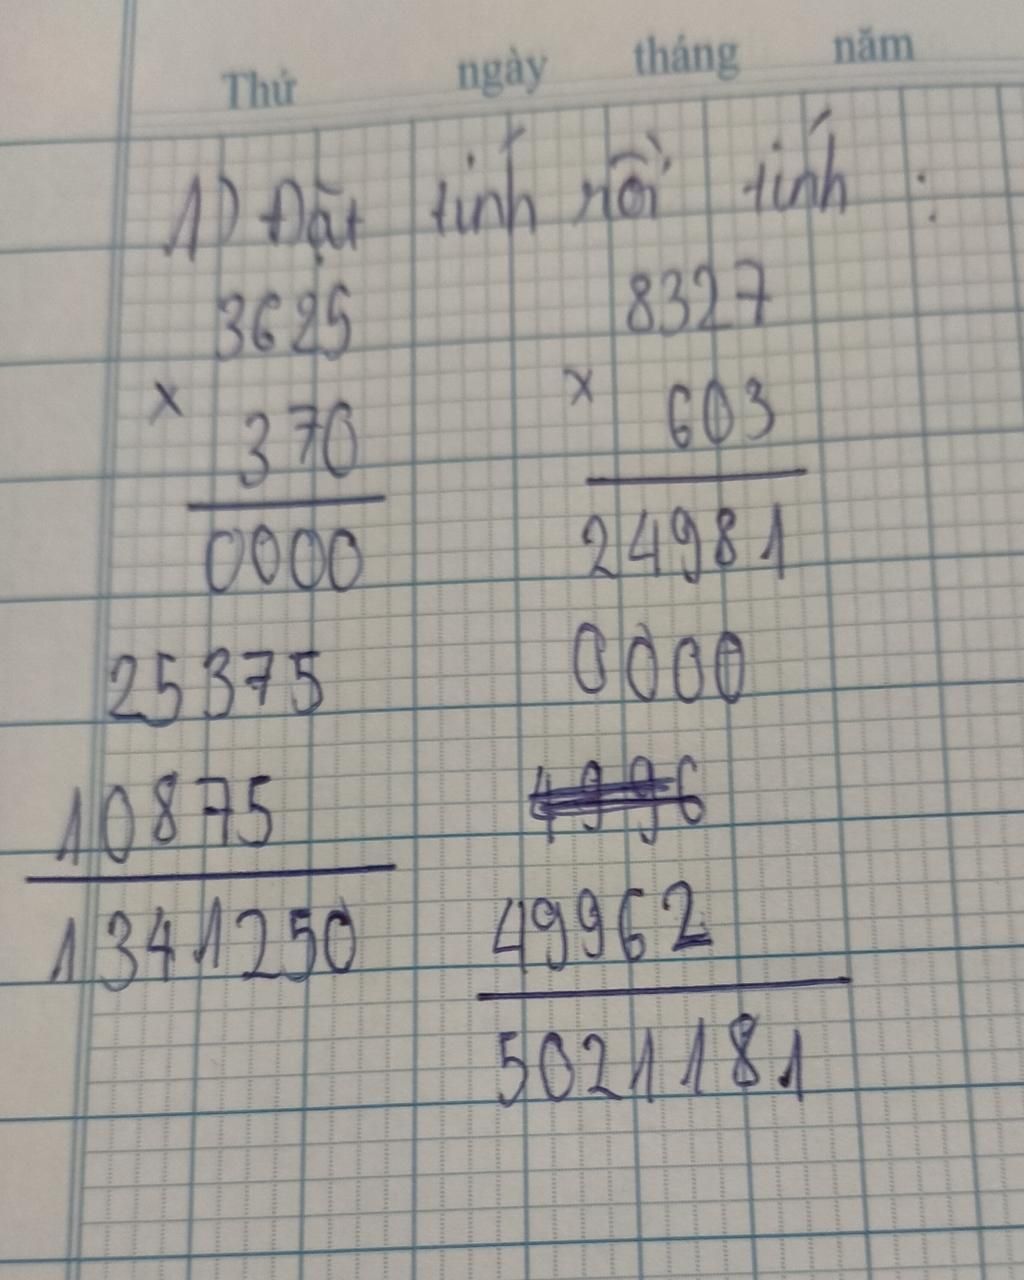 Thứ ngày tháng năm
1) Đặt tính rồi tính :
3625 8327
x 370 x 603
0000 24981
25375 0000
4996
10875 49962
1341250 5021181